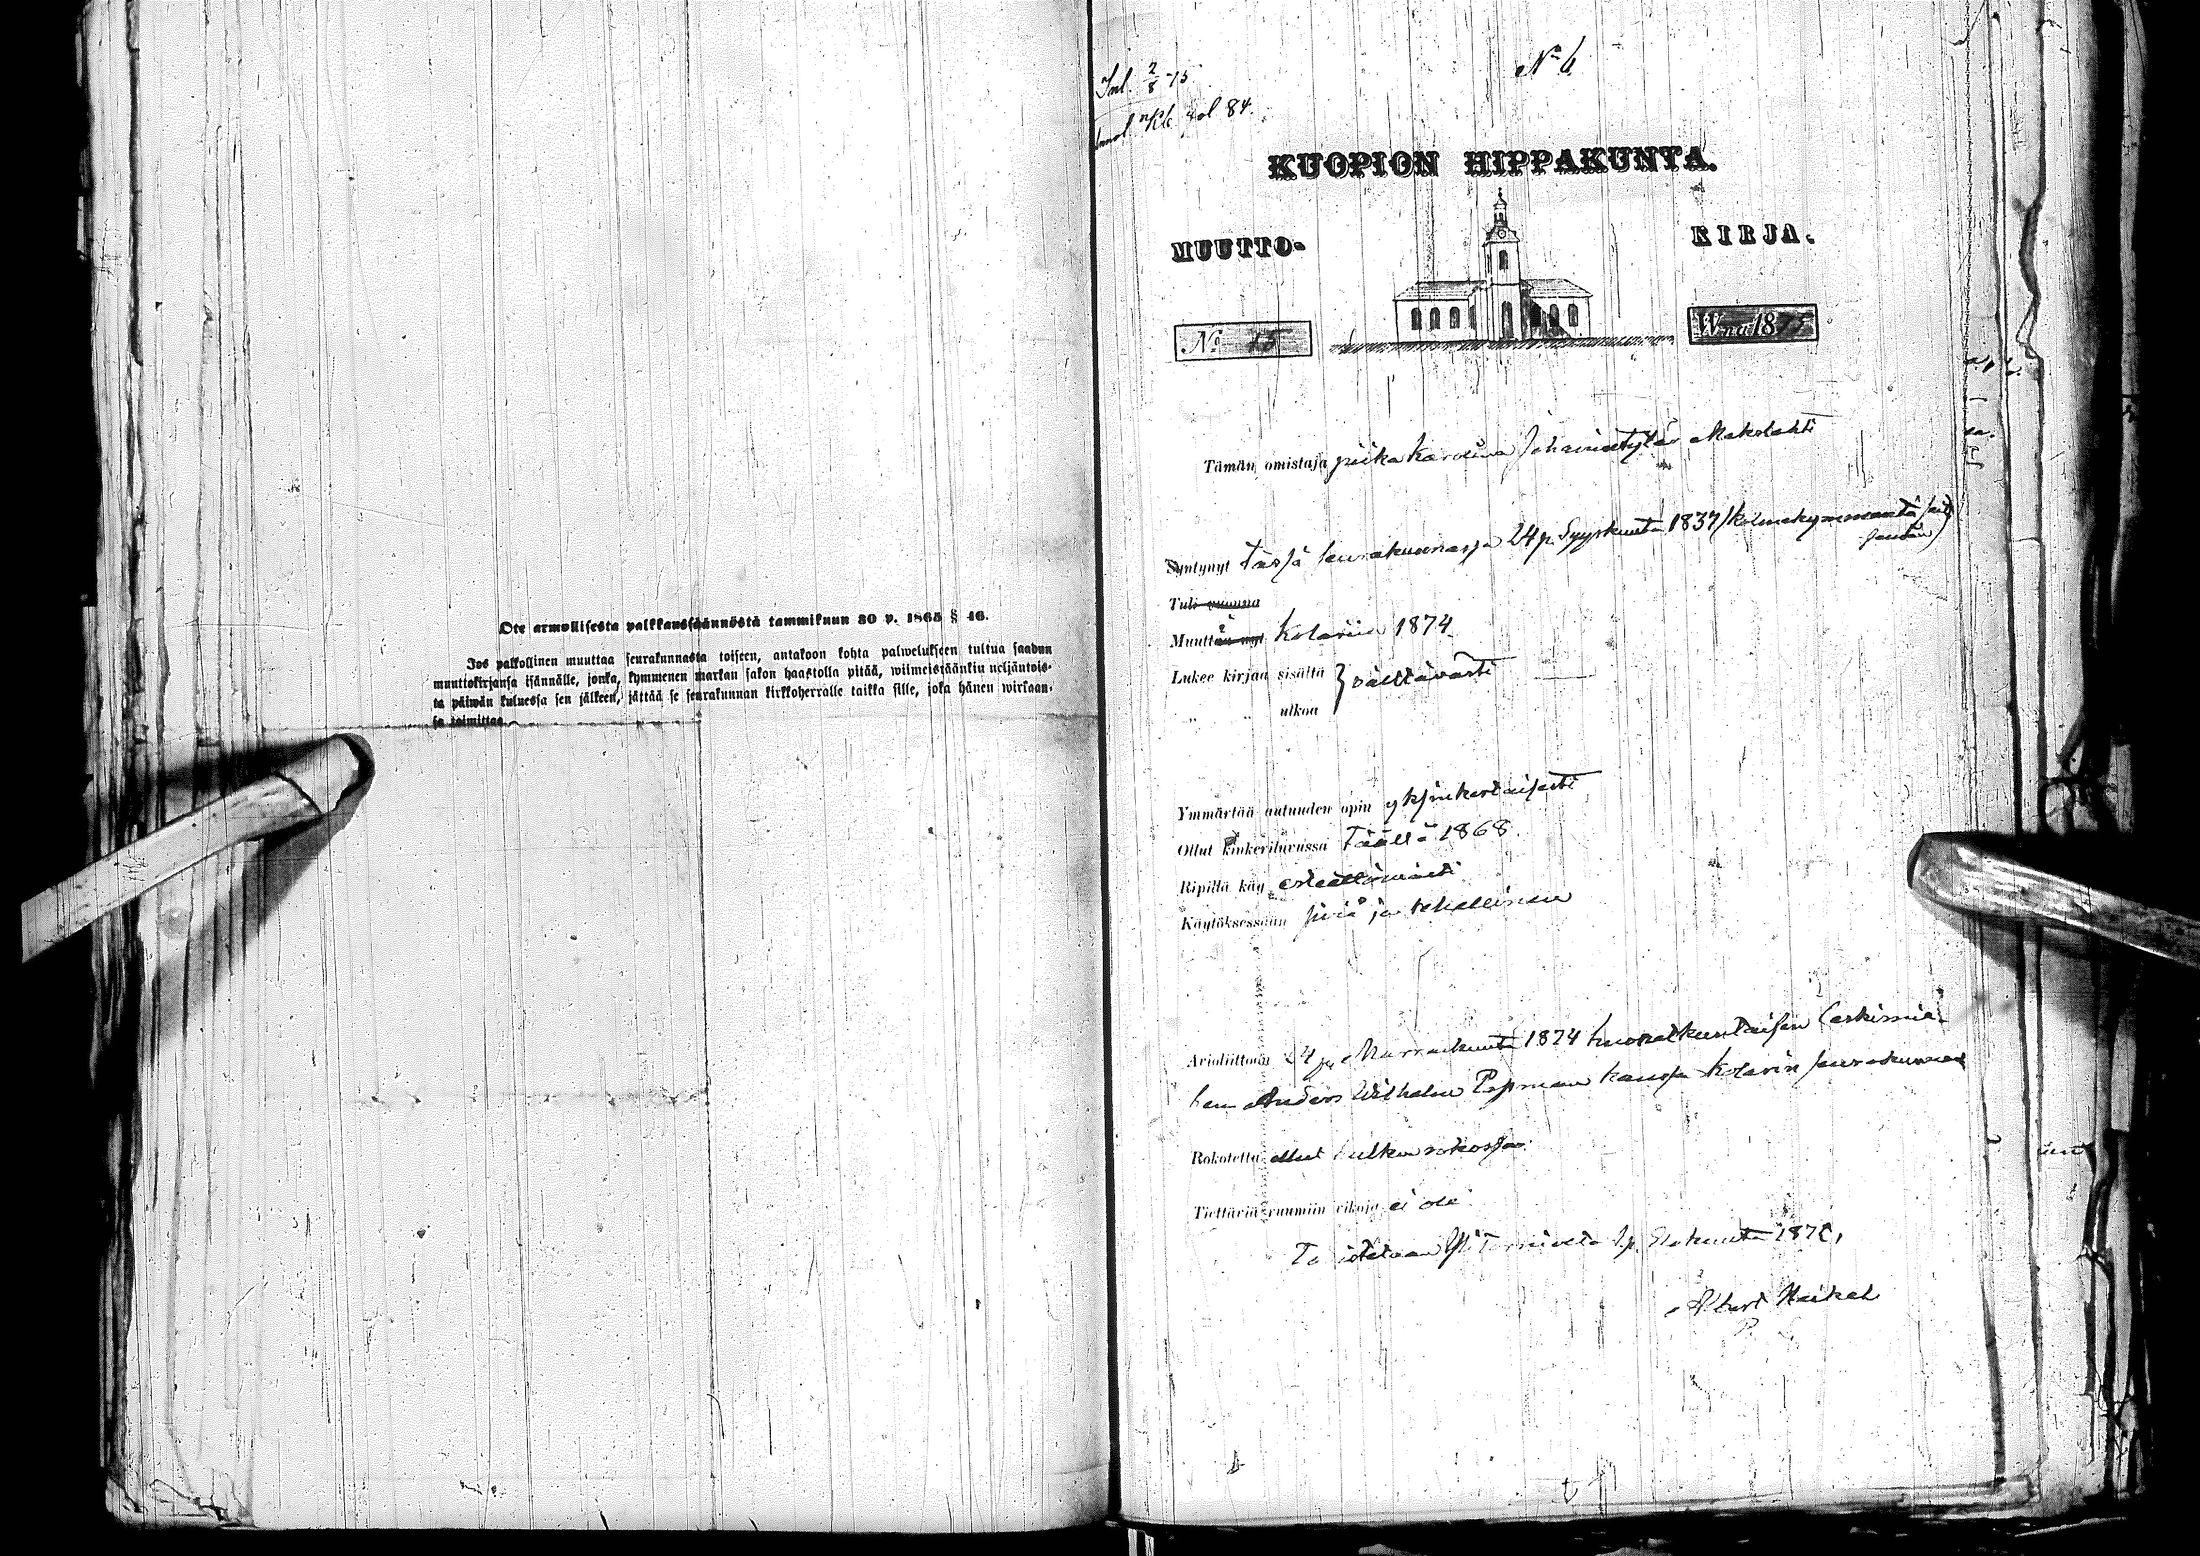 Ote armollisesta palkkaussäännöstä tammikuun 30 p. 1865 § 46.
Jos palkollinen muuttaa seurakunnasta toiseen, antakoon kohta palwelukseen tultua saadun
muuttokirjansa isännälle, jonka, kymmenen markan sakon haastolla pitää, wiimeistäänkin neljäntois-
ta päiwän kuluessa sen jälkeen, jättää se seurakunnan kirkkoherralle taikka sille, joka hänen wirkaan-
sa toimittaa.
Inl. 2/8 -75
Kb fol 84.
No 6
KUOPION HIPPAKUNTA.
MUUTTO- KIRJA.
No 15 W:na 1875
Tämän omistaja piika Karolina Johanintytär
Syntynyt tässä seurakunnassa 24 p. Syyskuuta 1837 (kolmekymmentä
Tuli vuonna
Muuttaa Kolariin 1874
Lukee kirjaa sisältä välttävästi
" " ulkoa
Ymmärtää autuuden opin yksinkertaisesti
Ollut kinkeriluvussa täällä 1868.
Ripillä käy esteettömästi
Käytöksessään siviä ja
Avioliittoon 24 p. Marraskuuta 1874 leskimie-
hen Anders Wilhelm kanssa Kolarin seurakunnas
Rokotettu ollut rokossa.
Tiettäviä ruumiin vikoja ei ole
Todistetaan Yli Torniolta p. Elokuuta 1875,
Albert Heikel